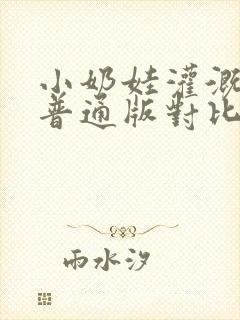 小奶娃灌溉
普通版對比
雨水汐